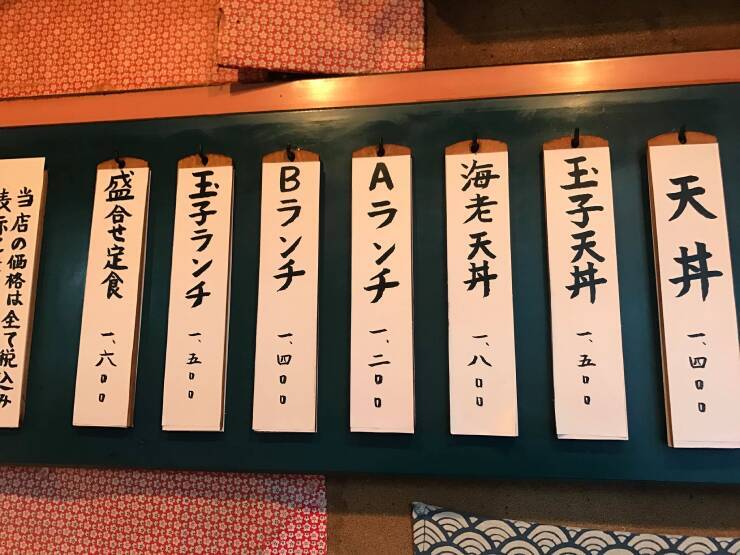 天丼 一、四〇〇
玉子天丼 一、五〇〇
海老天丼 一、八〇〇
Aランチ 一、二〇〇
Bランチ 一、四〇〇
玉子ランチ 一、五〇〇
盛合せ定食 一、六〇〇
当店の価格は全て税込み
表示